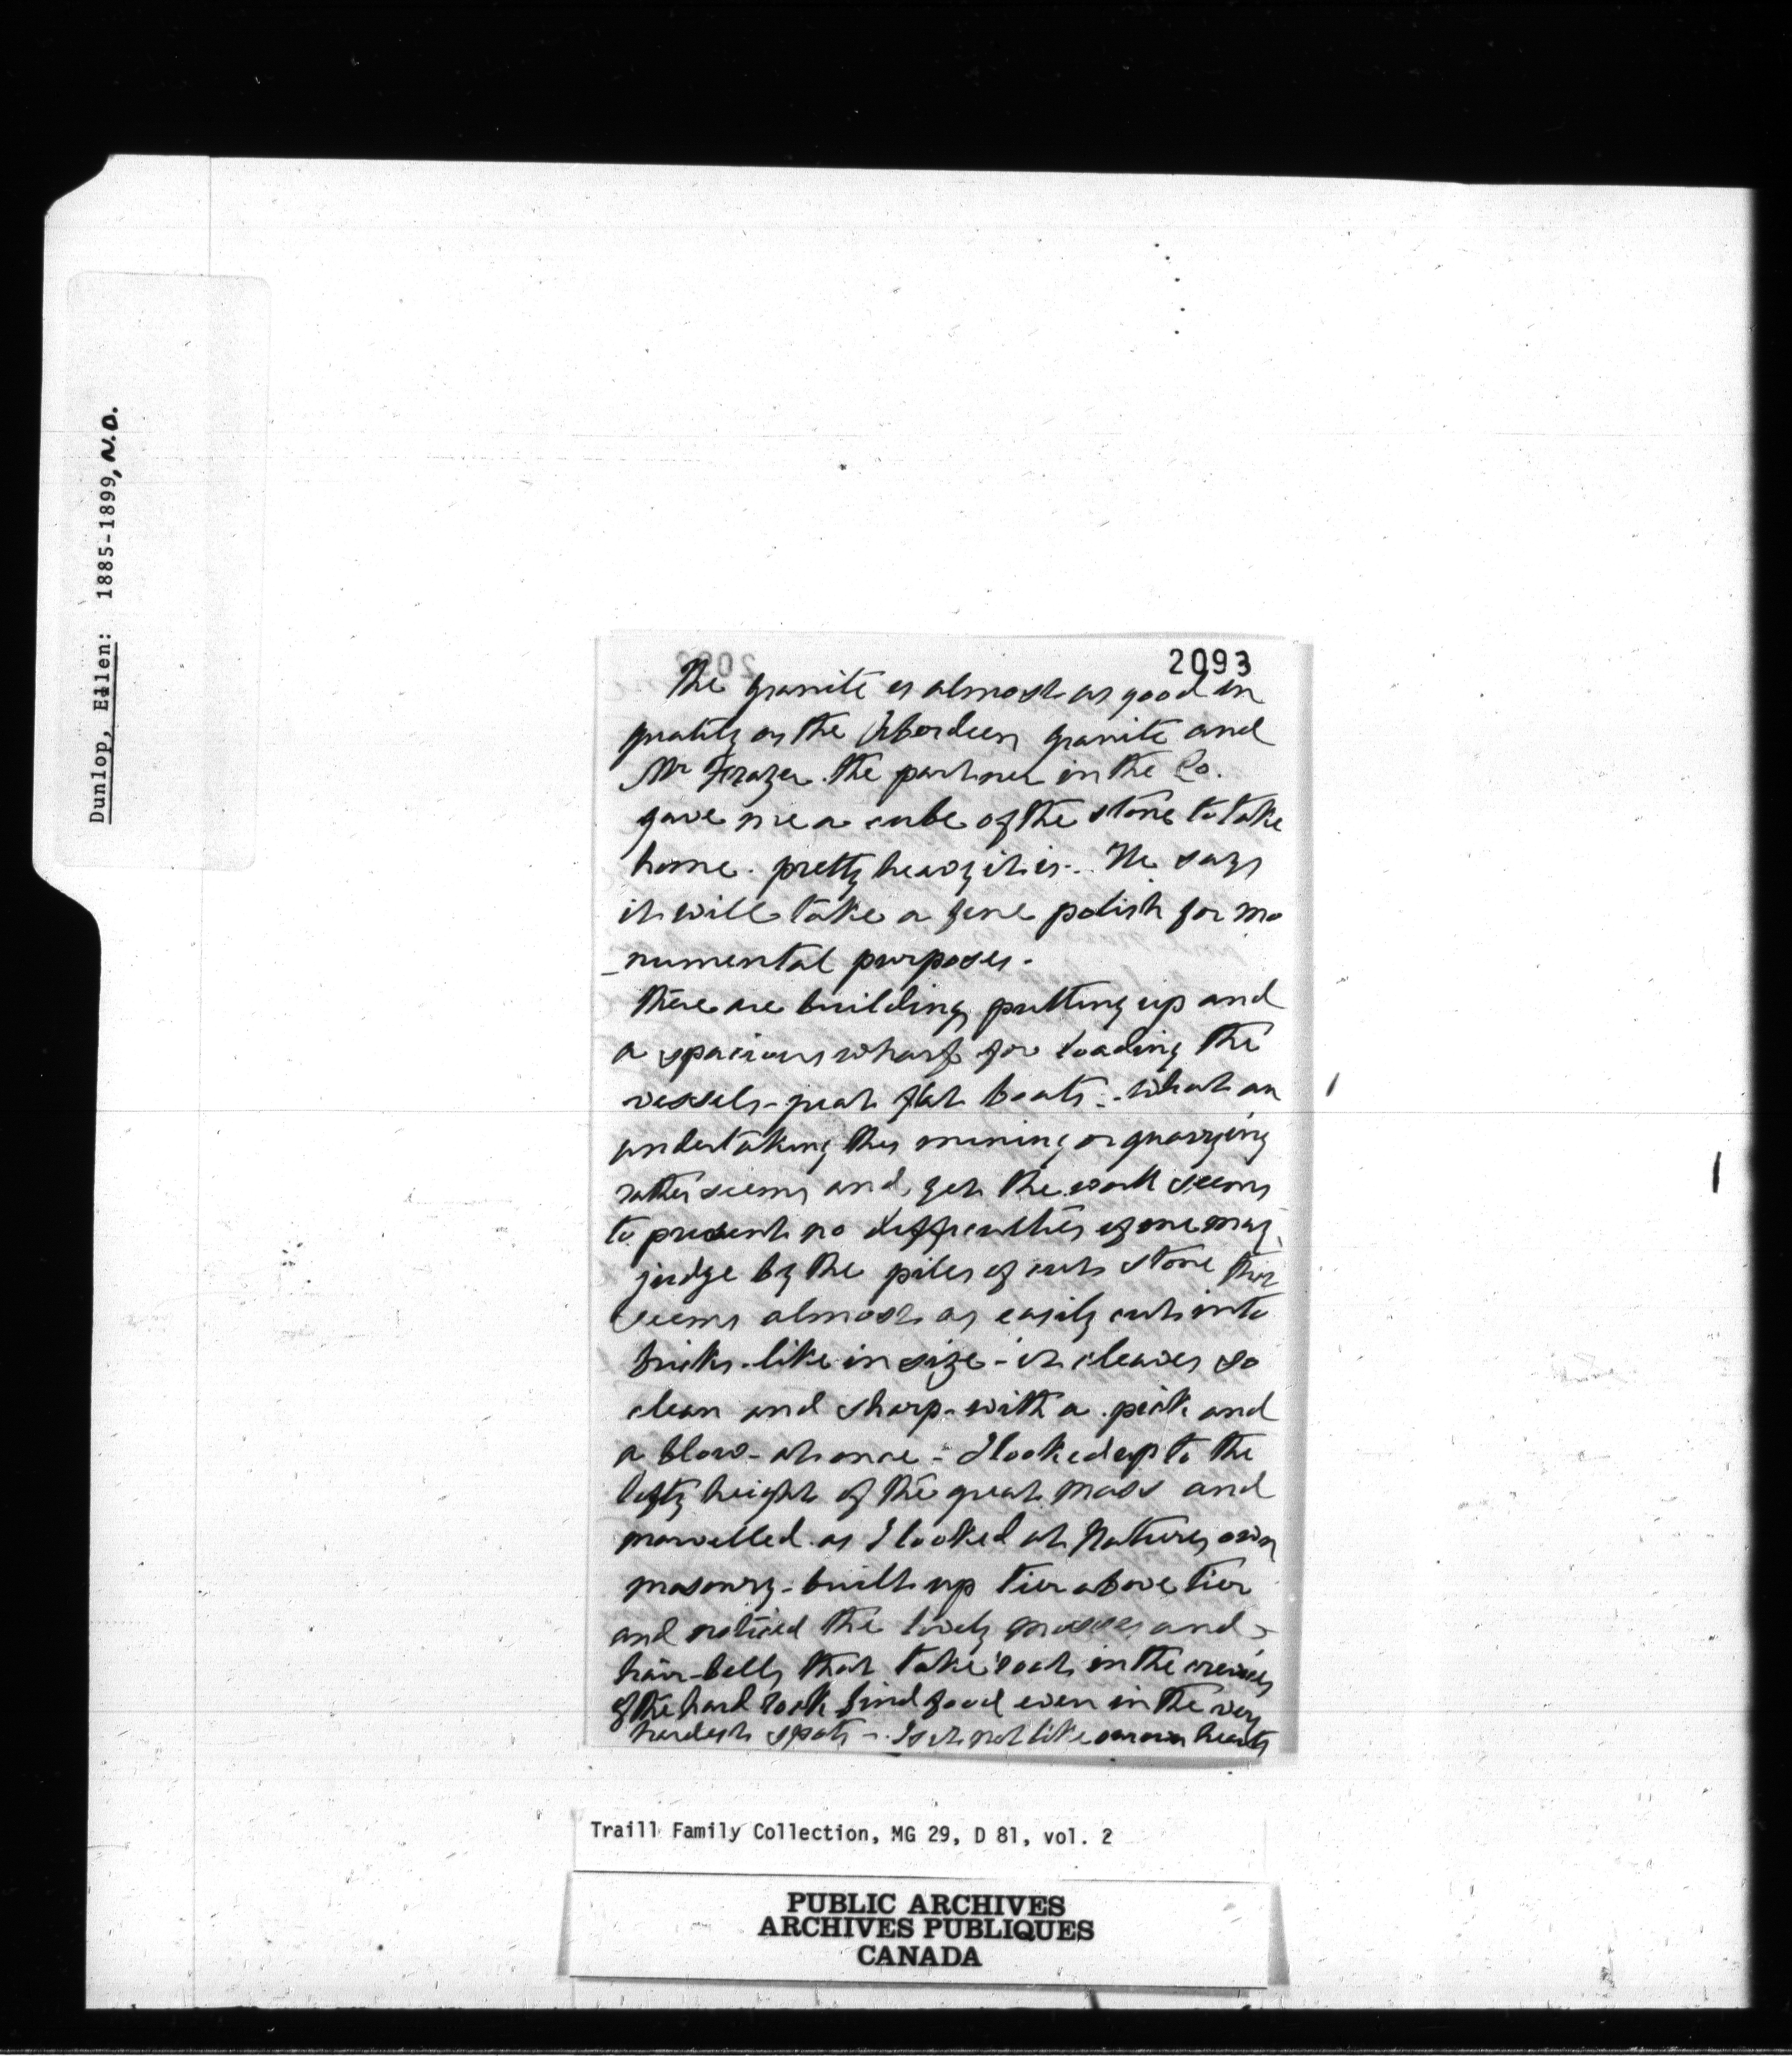 Dunlop, Ellen: 1885-1899, N.D.
2093
The granite is almost as good in
quality as the Aberdeen granite and
Mr Frazer the partner in the Co.
gave me a cube of the stone to take
home. pretty heavy it is.. He says
it will take a fine polish for mo
-numental purposes.
there are building putting up and
a spacious wharf for loading the
vessels - great flat boats - What an
undertaking this mining or quarrying
rather seems and yet the work seems
to present no difficulties if one may
judge by the piles of cut stone this
seems almost as easily cut into
bricks - like in size - it cleaves so
clean and sharp - with a pick and
a blow - at once - I looked up to the
lofty height of the great mass and
marvelled as I looked at Natures own
masonry - built up tier above tier
and noticed the lovely mosses and
hair-bells that take root in the crevices
of the hard rock find food even in the very
hardest spots - Is it not like our own hearts
Traill Family Collection, MG 29, D 81, vol. 2
PUBLIC ARCHIVES
ARCHIVES PUBLIQUES
CANADA